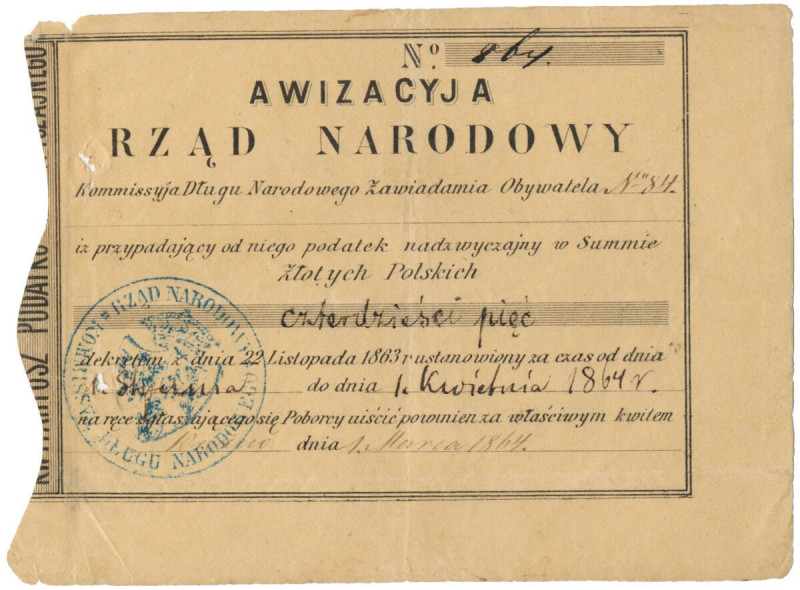 No 864.
AWIZACYJA
RZĄD NARODOWY
Kommissyja Długu Narodowego Zawiadamia Obywatela No 84.
iż przypadający od niego podatek nadzwyczajny w Summie
Złotych Polskich
czterdzieści pięć
dekretem z dnia 22 Listopada 1863 r ustanowiony za czas od dnia
1. Stycznia do dnia 1. Kwietnia 1864 r.
na ręce zgłaszającego się Poborcy uiścić powinien za właściwym kwitem
dnia 1. Marca 1864.
RZĄD NARODOWY
KOMMISSYJA DŁUGU NARODOWEGO
PODATKU